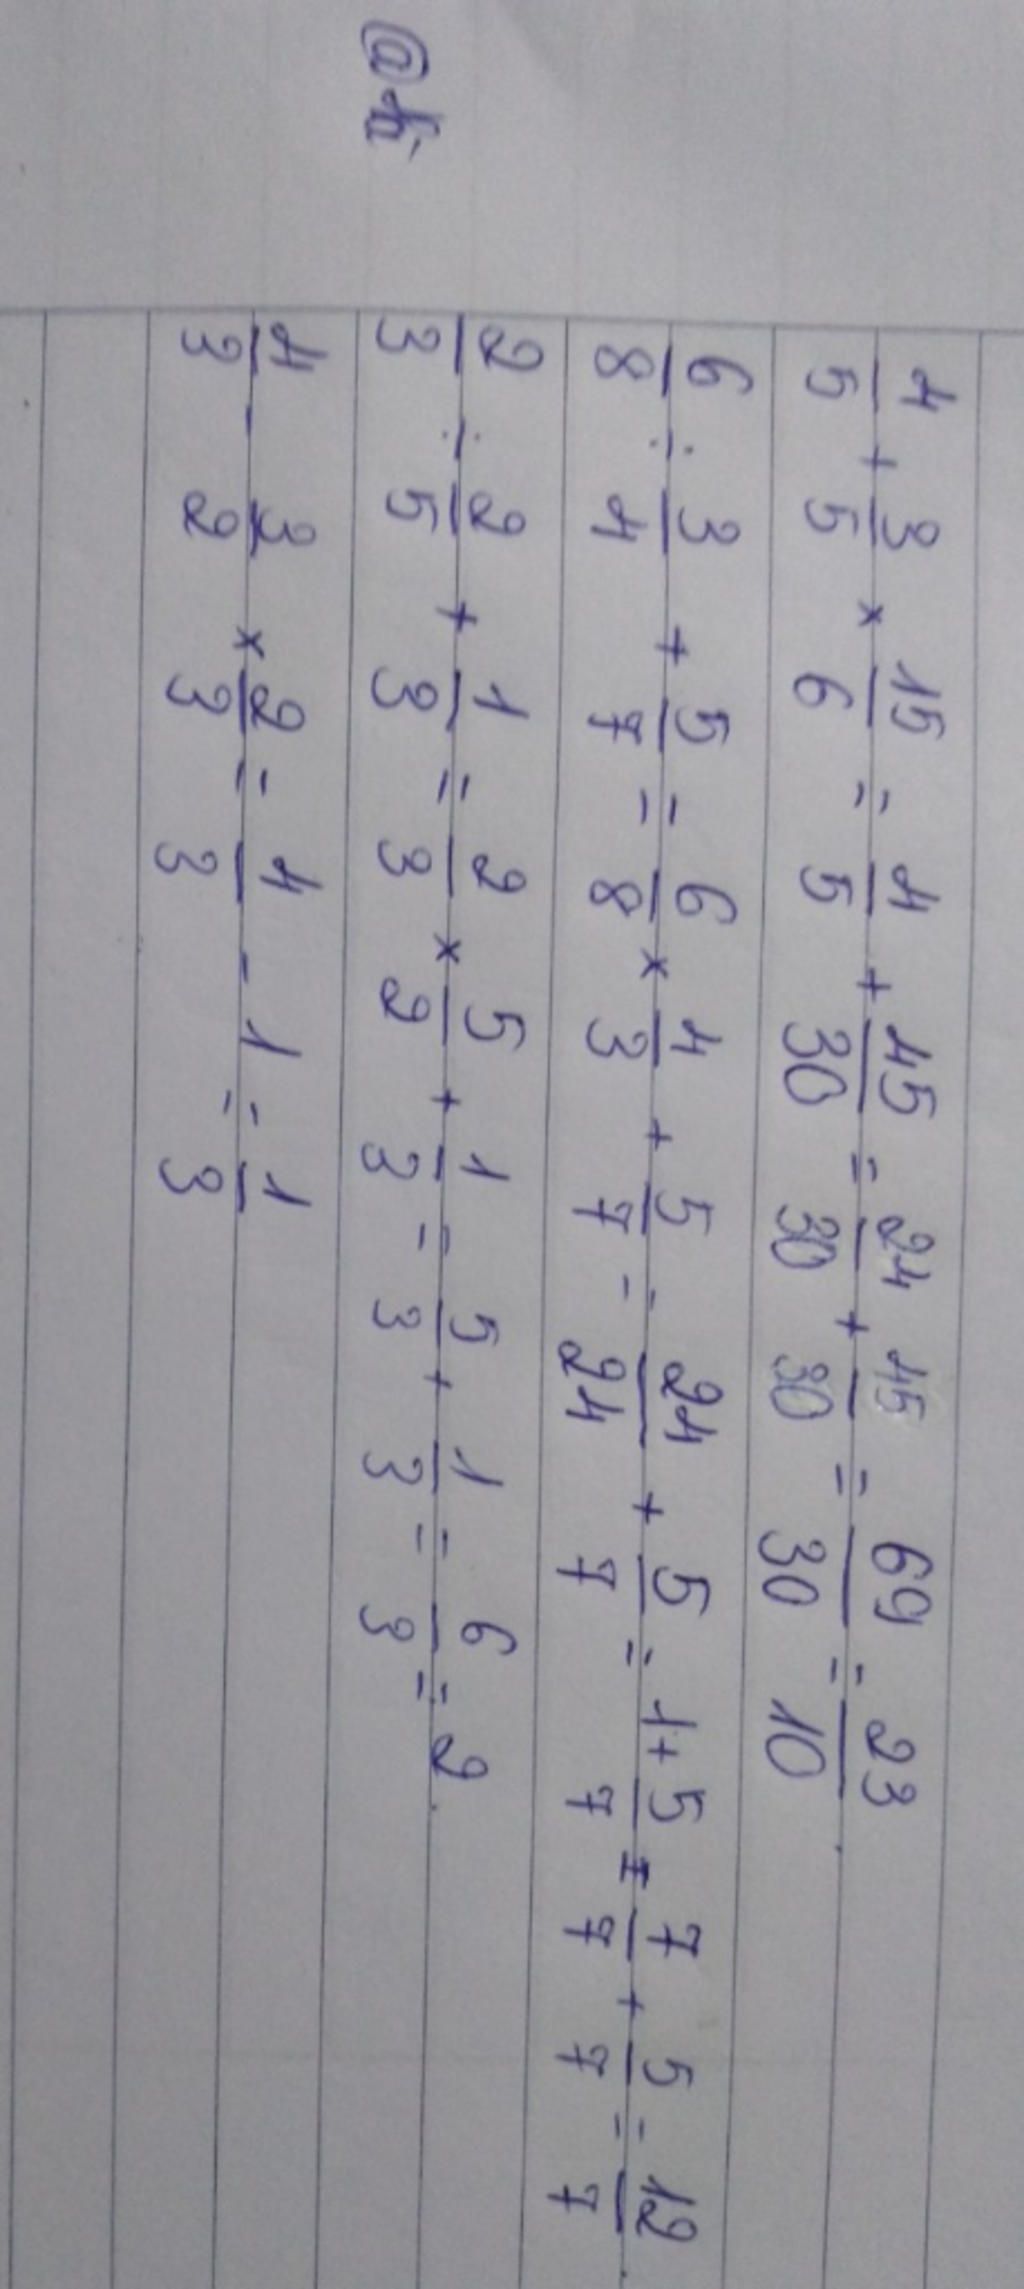 4/5 + 3/5 × 15/6 = 4/5 + 45/30 = 24/30 + 45/30 = 69/30 = 23/10.
6/8 : 3/4 + 5/7 = 6/8 × 4/3 + 5/7 = 24/24 + 5/7 = 1 + 5/7 = 7/7 + 5/7 = 12/7.
2/3 : 2/5 + 1/3 = 2/3 × 5/2 + 1/3 = 5/3 + 1/3 = 6/3 = 2.
4/3 - 3/2 × 2/3 = 4/3 - 1 = 1/3